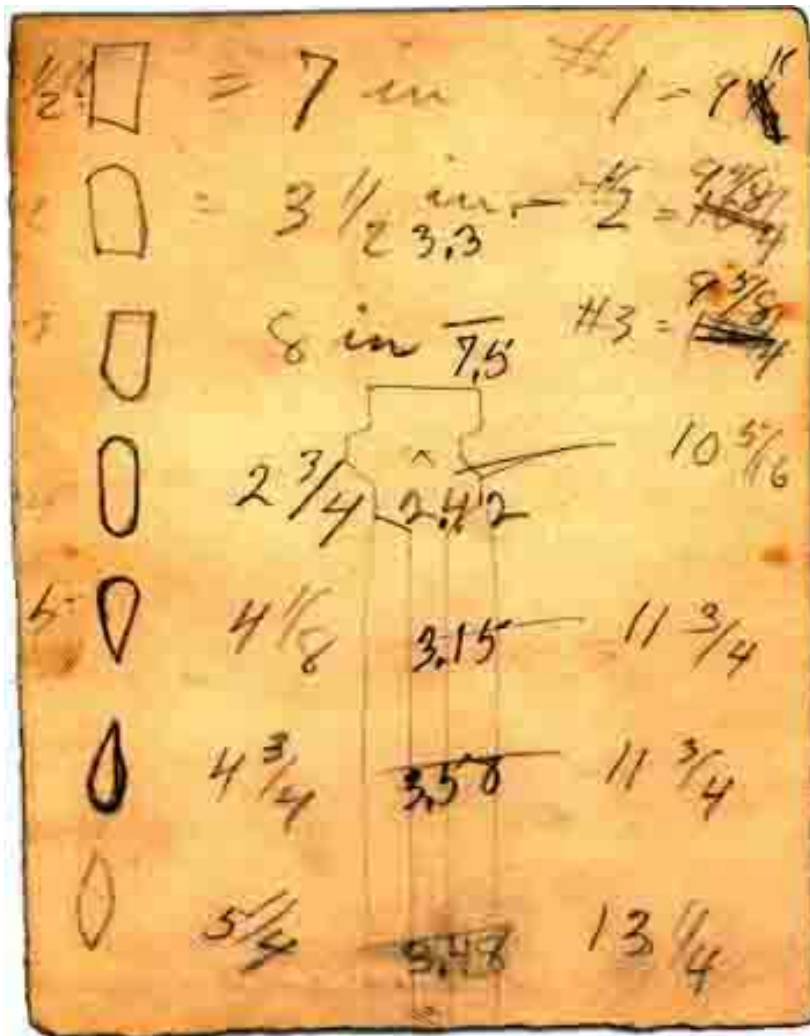 1/2 = 7 in # 1 - 9
= 3 1/2 in - # 2 = 9
3,3
8 in 7,5 #3 = 9 5/8
2 3/4 2,42 10 5/16
5 4 1/8 3,15 11 3/4
4 3/4 3,58 11 3/4
5 1/4 3,48 13 1/4